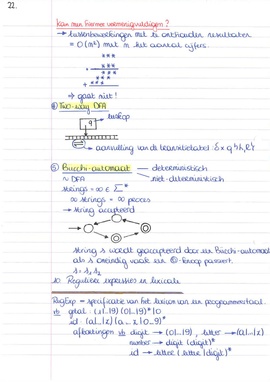 22.
Kan men hiermee vermenigvuldigen?
→ tussenbewerkingen met te onthouden resultaten
= O(n²) met n het aantal cijfers.
***
+ ***
***
+ ***
→ gaat niet!
④ Two-way DFA
leeskop
q
→ aanvulling van de transitietabel: δ x q
⑤ Buechi-automaat → deterministisch
→ niet-deterministisch
~ DFA
strings = ∞ ∈ Σ*
∞ strings = ∞ proces
→ string accepteerd
string s wordt geaccepteerd door een Buechi-automaat
als s oneindig vaak een ◎-knoop passeert.
s = s₁ s₂
10 Reguliere expressies en lexicale
RegExp = specificatie van het lexicon van een programmeertaal
vb getal: (1|..|9)(0|..|9)*|0
id: (a|..|z)(a...z|0..9)*
afkortingen vb digit → (0|..|9), letter → (a|..|z)
number → digit (digit)*
id → letter (letter|digit)*